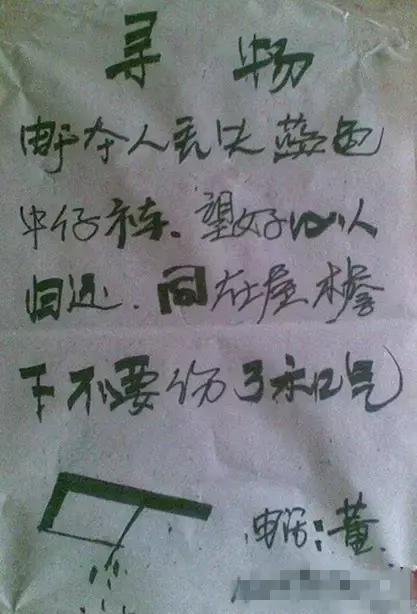 寻物
由于本人丢失蓝色
牛仔裤、望好心人
归还．同在屋檐
下不要伤了和气
电话：董